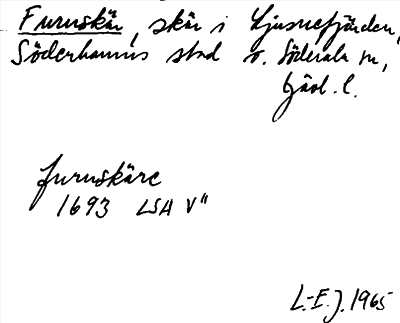 Furuskär, skär i Ljusnefjärden,
Söderhamns stad o. Söderala sn,
Gävl. l.
furuskäre
1693 LSA V"
L-E.J. 1965